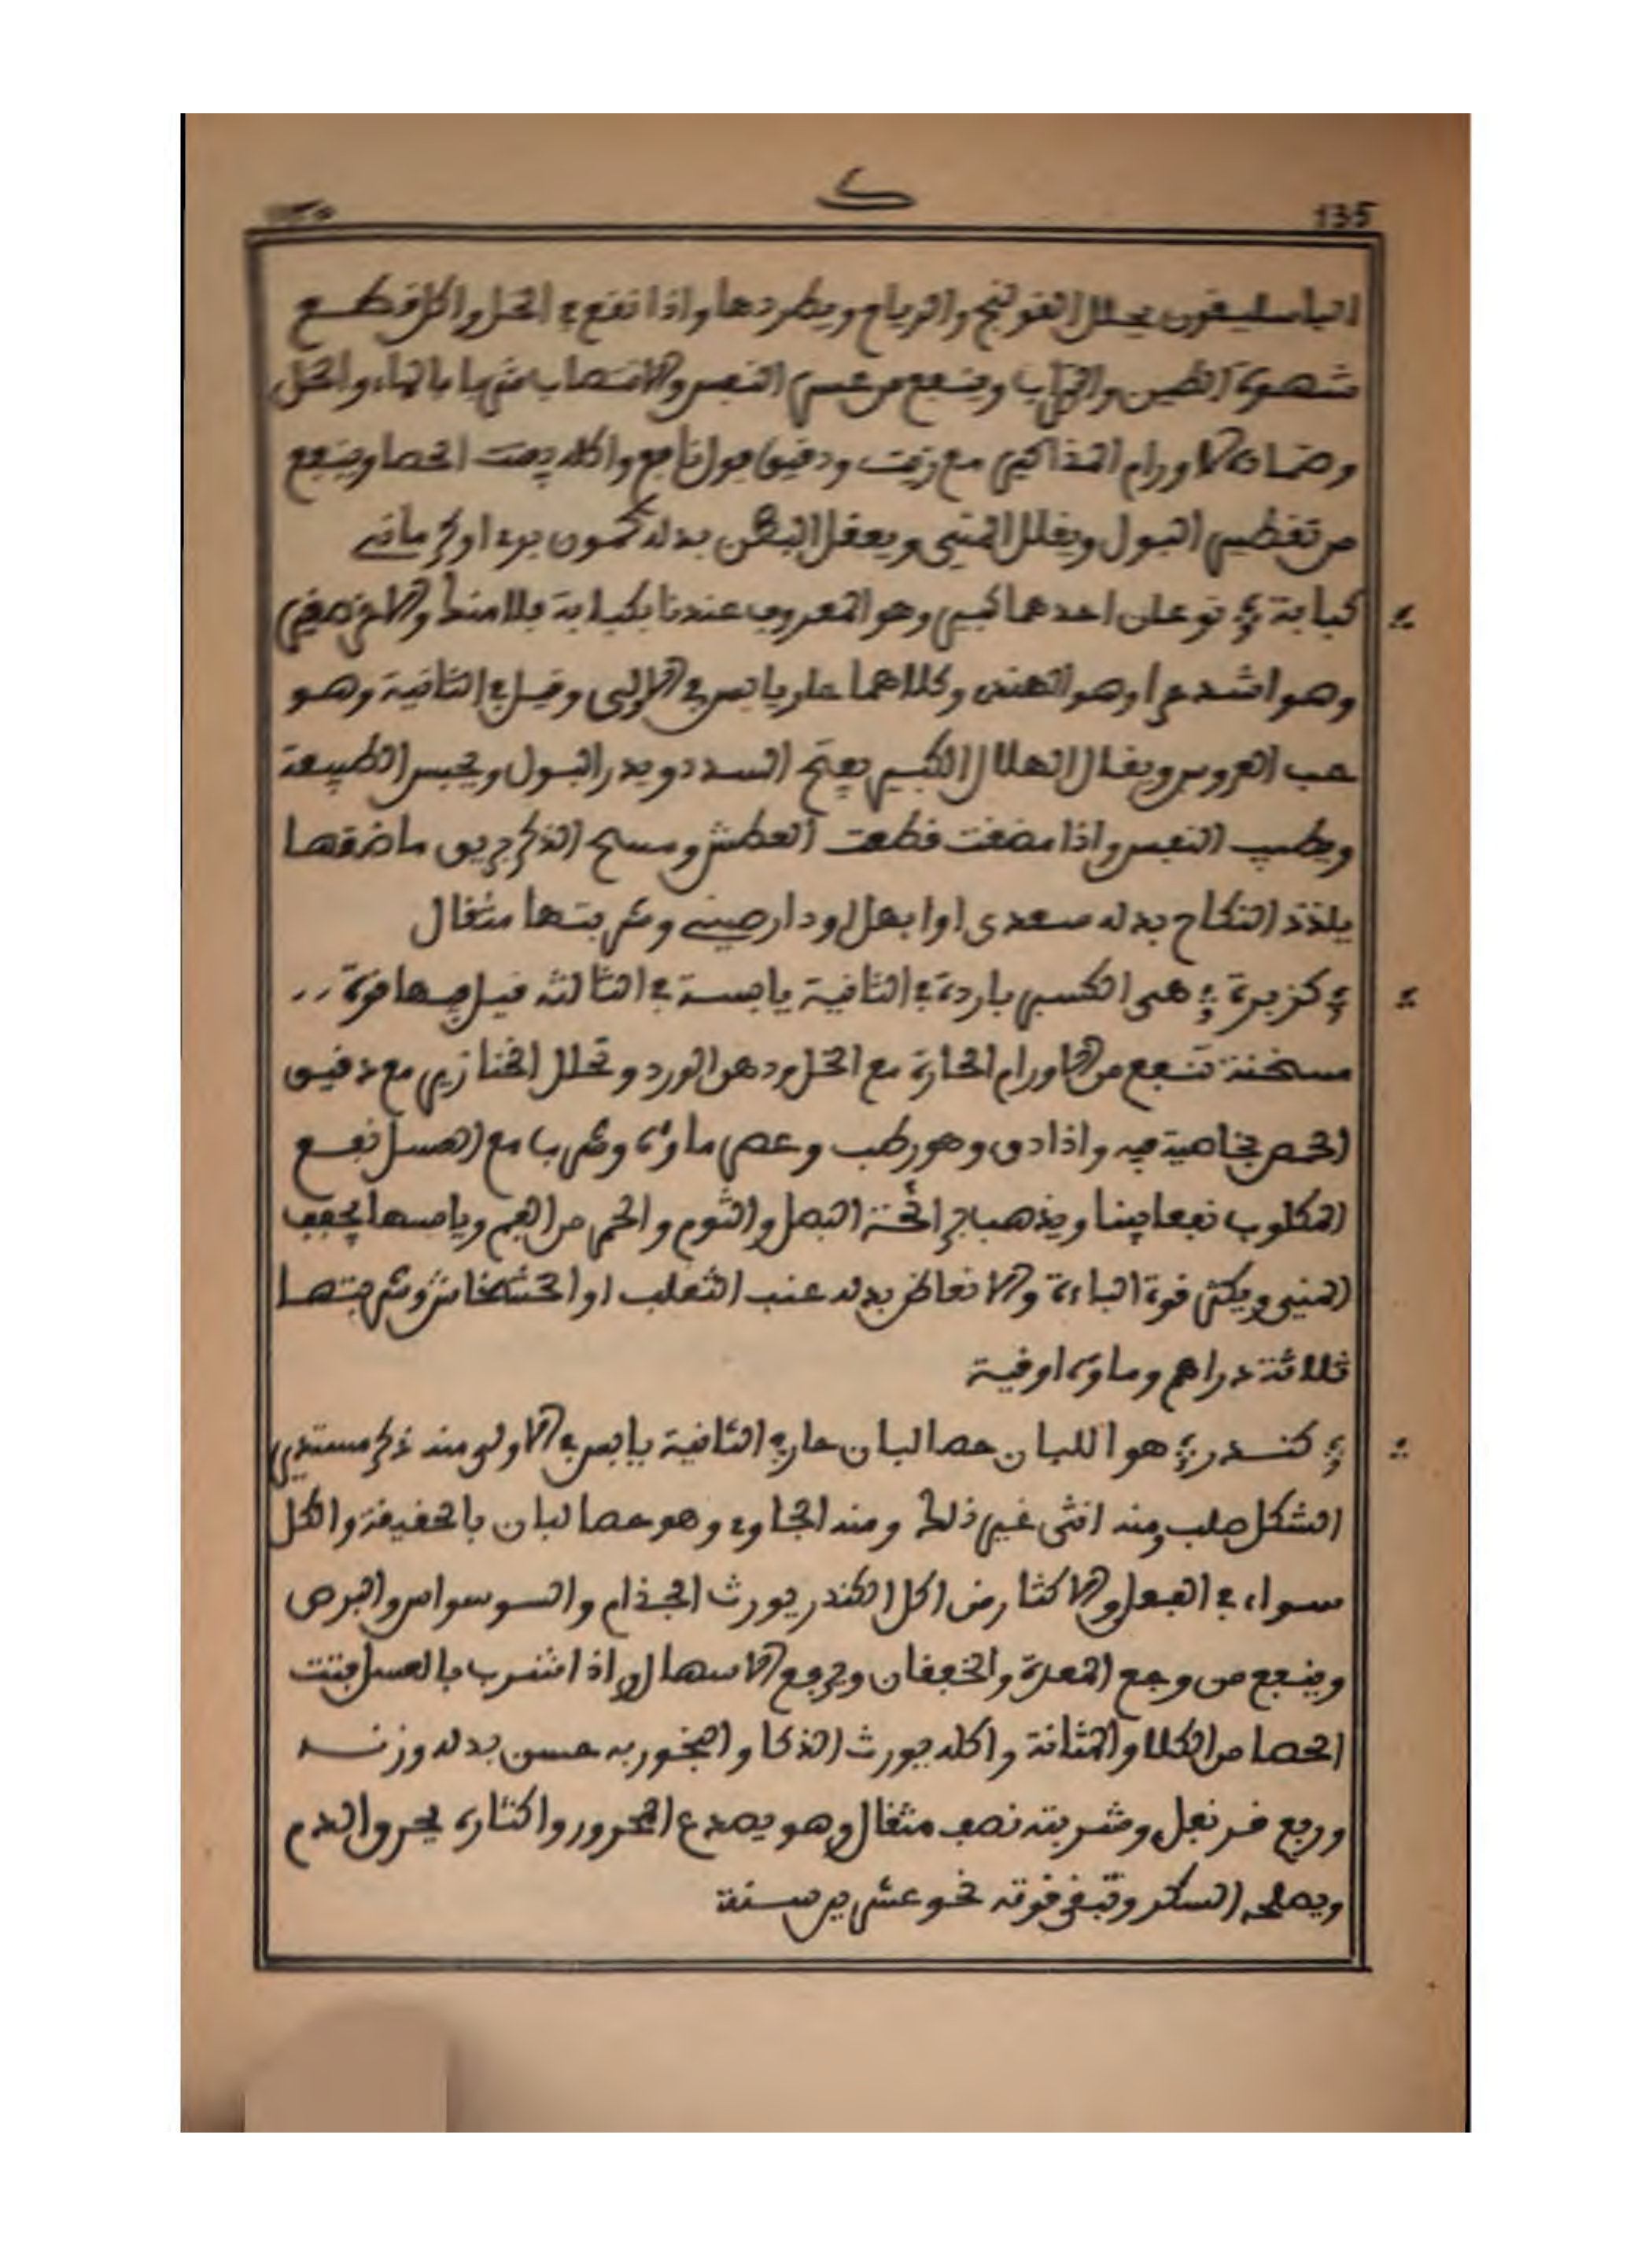 ك
135
١٣٥
الباسليقون يحلل القولنج والرياح ويطردها واذا نقع في الخل واكل قطع
شهوة الطين والتراب وينفع من عسر النفس والانتصاب شربا بالماء والخل
وضمادا لاورام المذاكير مع زيت ودقيق فول نافع واكله يفتت الحصا وينفع
من تقطير البول ويقلل المني ويعقل البطن بدله كمون بري او كرماني
كبابة نوعان احدهما كبير وهو المعروف عندنا بكبابة بلا منداو والاخر صغير
وهو اشد حرا وهو الهندي وكلاهما حار يابس في الاولى وقيل في الثانية وهو
حب العروس ويقال الهلال الكبير يفتح السدد ويدر البول ويحبس الطبيعة
ويطيب النفس واذا مضغت قطعت العطش ومسح الذكر بريق ماضغها
يلذذ النكاح بدله سعدى او ابهل او دارصيني وشربتها مثقال
كزبرة هي الكسبر باردة في الثانية يابسة في الثالثة قيل فيها قوة
مسخنة تنفع من الاورام الحارة مع الخل ودهن الورد وتحلل الخنازير مع دقيق
الحمص بخاصية فيه واذا دق وهو رطب وعصر ماؤه وشرب مع العسل نفع
المكلوب نفعا بينا ويذهب برائحة البصل والثوم والخمر من الفم ويابسها يجفف
المني ويكثر قوة الباءة والانعاظ بدله عنب الثعلب او الخشخاش وشربتها
ثلاثة دراهم وماؤه اوقية
كندر هو اللبان حصا لبان حار في الثانية يابس في الاولى منه ذكر مستدير
الشكل صلب ومنه انثى غير ذلك ومنه الجاوي وهو حصا لبان بالحقيقة والكل
سواء في الفعل والاكثار من اكل الكندر يورث الجذام والوسواس والبرص
وينفع من وجع المعدة والخفقان ويرفع الاسهال واذا شرب بالعسل فتت
الحصا من الكلا والمثانة واكله يورث الذكا والبخور به حسن بدله وزنه
وربع قرنفل وشربته نصف مثقال وهو يصدع المحرور واكثاره يحرق الدم
ويصلحه السكر وتبقى قوته نحو عشرين سنة